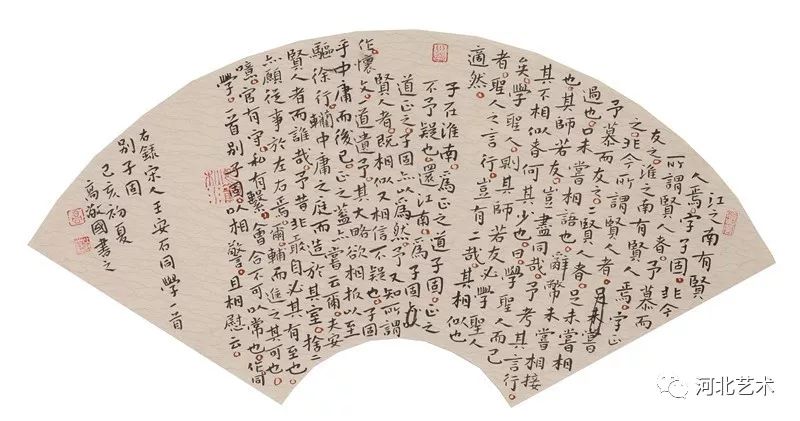 江之南有賢
人焉。字子固。非今
所謂賢人者。予慕而
友之。淮之南有賢人焉。字正
之。非今所謂賢人者。
予慕而友之。二賢人者。足未嘗
過也。口未嘗相語也。辭幣未嘗相接
也。其師若友。豈盡同哉。予考其言行。
其不相似者。何其少也。曰。學聖人而已
矣。學聖人。則其師若友。必學聖人
者。聖人之言行。豈有二哉。其相似也
適然。
予在淮南。為正之道子固。正之
不予疑也。還江南。為子固
道正之。子固亦以為然。予又知所謂
賢人者。既相似。又相信不疑也。子固
作懷友一道遺予。其大略欲相扳以至
乎中庸而後已。正之蓋亦嘗云爾。夫安
驅徐行。轥中庸之庭而造於其室。捨二
賢人者而誰哉。予昔非敢自必其有至也
亦願從事於左右焉。爾輔而進之其可也
噫。官有守。私有繫。會合不可以常也。作同
學一首別子固。以相警。且相慰云。
右錄宋人王安石同學一首
別子固
己亥初夏
高敬國書之
河北艺术